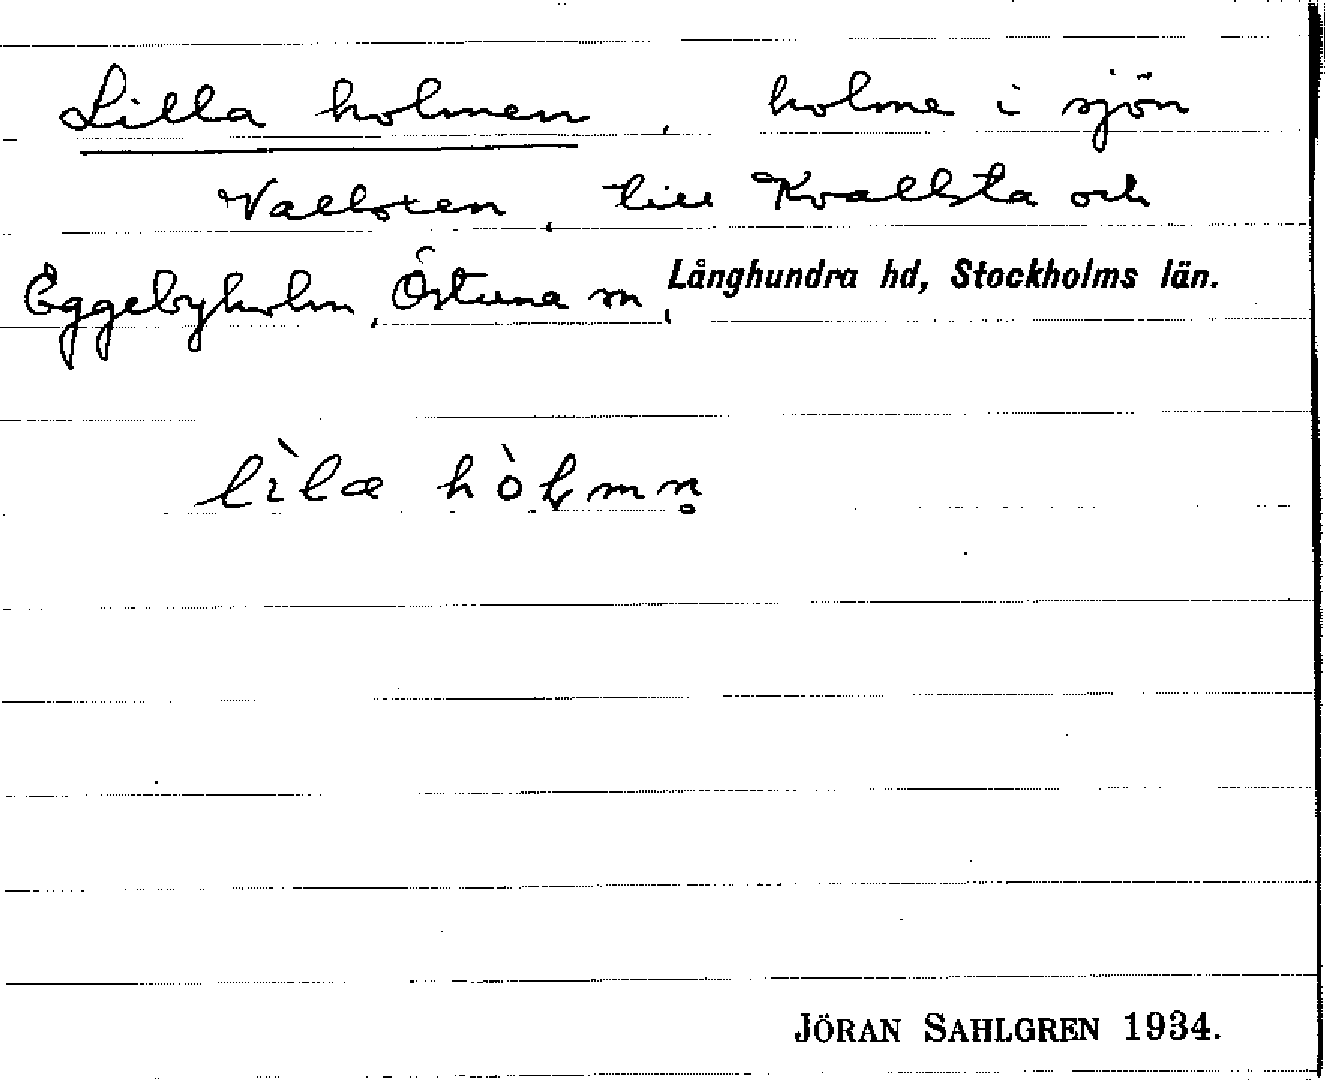 Lilla holmen, holme i sjön
Valloxen, till Kvallsta och
Eggebyholm, Östuna sn, Långhundra hd, Stockholms län.
lìlæ hòlmn̥
JÖRAN SAHLGREN 1934.